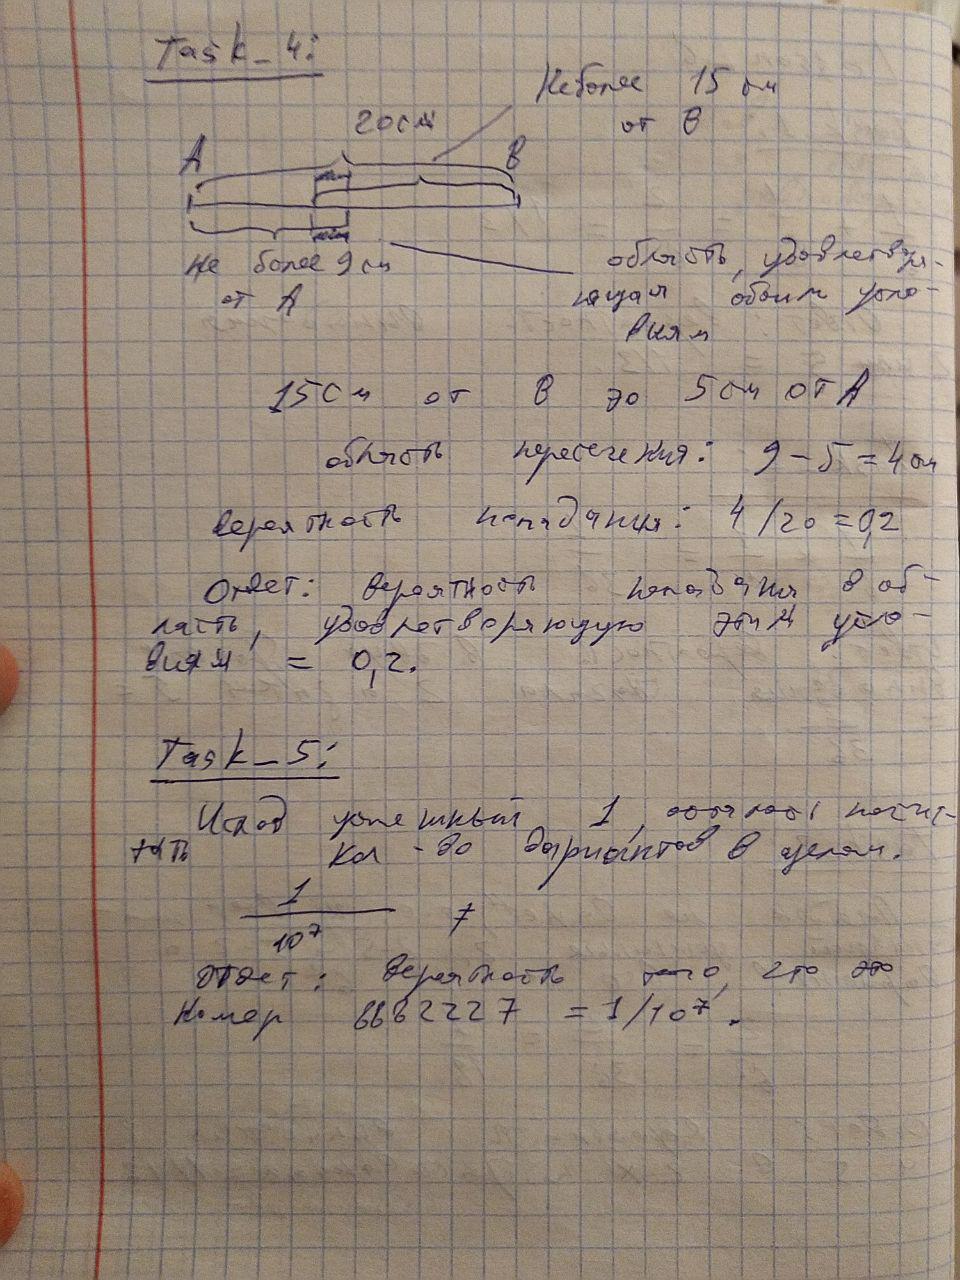 Task_4:
Не более 15 см
от В
20см
А В
не более 9 см
от А
область, удовлетворя-
ющая обоим усло-
виям
15см от В до 5 см от А
область пересечения: 9 - 5 = 4 см
вероятность попадания: 4/20 = 0,2
Ответ: вероятность попадания в об-
ласть, удовлетворяющую этим усло-
виям = 0,2.
Task_5:
Исход успешный 1, осталось посчи-
тать кол-во вариантов в целом.
1
10⁷
Ответ: вероятность того, что это
номер 6662227 = 1/10⁷.